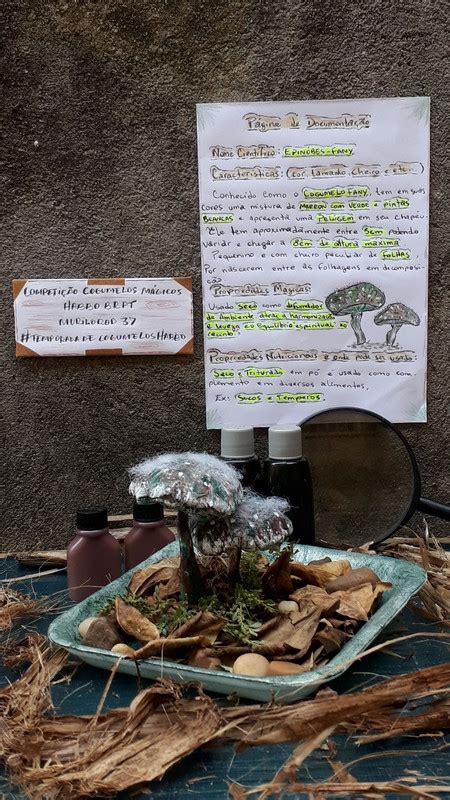 Página de Documentação
Nome Científico: EPINÓBES-FANY
Características: (cor, tamanho, cheiro e etc...)
Conhecido como o COGUMELO FANY, tem em suas
cores uma mistura de MARROM COM VERDE e PINTAS
BRANCAS e apresenta uma PELUGEM em seu chapéu.
Ele tem aproximadamente entre 5cm podendo
variar e chegar a 8cm de altura máxima
Pequenino e com cheiro peculiar de FOLHAS
Por nascerem entre as folhagens em decomposi-
ção
Propriedades Mágicas:
Usado SECO como difusores
de Ambiente atrai a harmonização
e leveza ao Equilíbrio espiritual ao
recinto.
Propriedades Nutricionais: e pode ser usado
Seco e Triturado em pó e usado como com-
plemento em diversos alimentos,
Ex: Sucos e Temperos.
COMPETIÇÃO COGUMELOS MÁGICOS
HABBO BR/PT
MURILORBD 37
#TEMPORADADECOGUMELOSHABBO